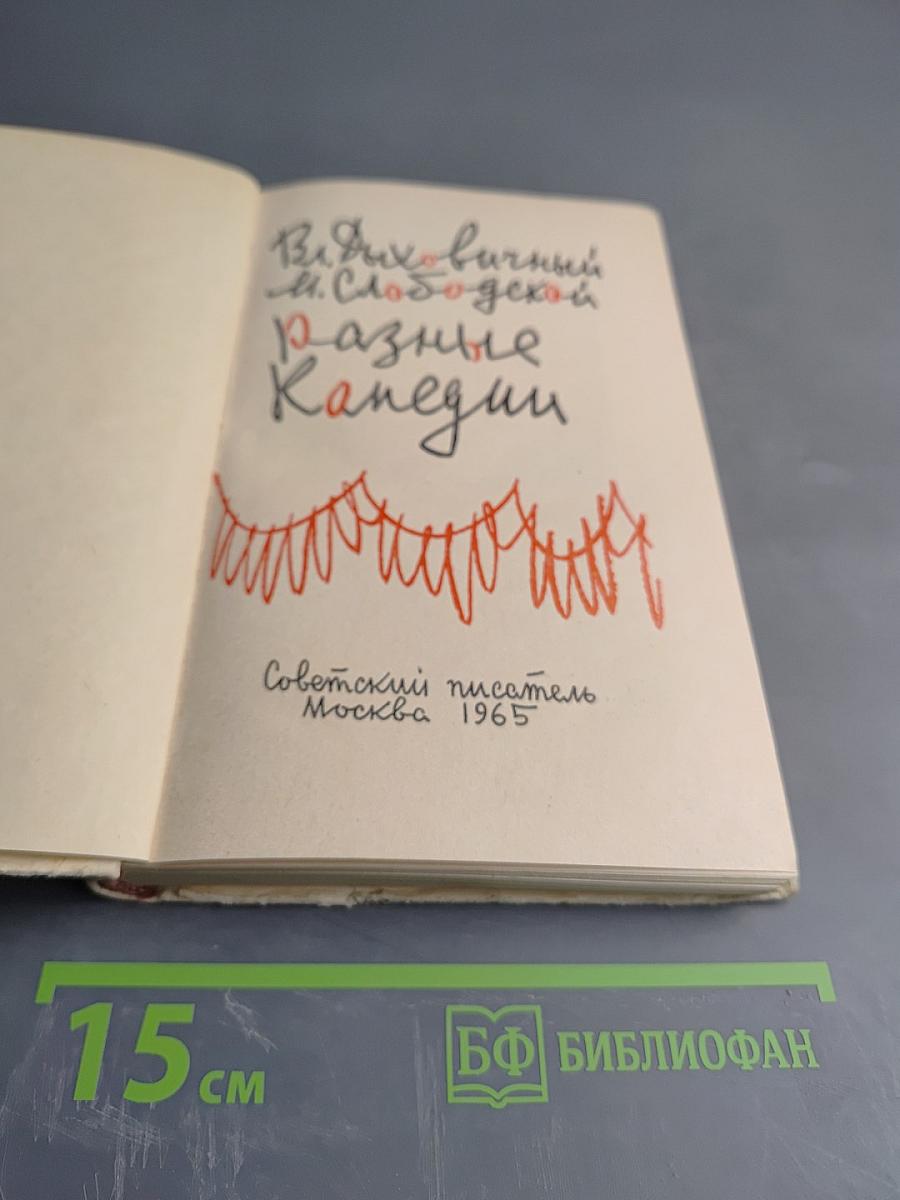 Вл. Дыховичный
М. Слободской
разные
Камедии
Советский писатель
Москва 1965
15 см
БФ БИБЛИОФАН